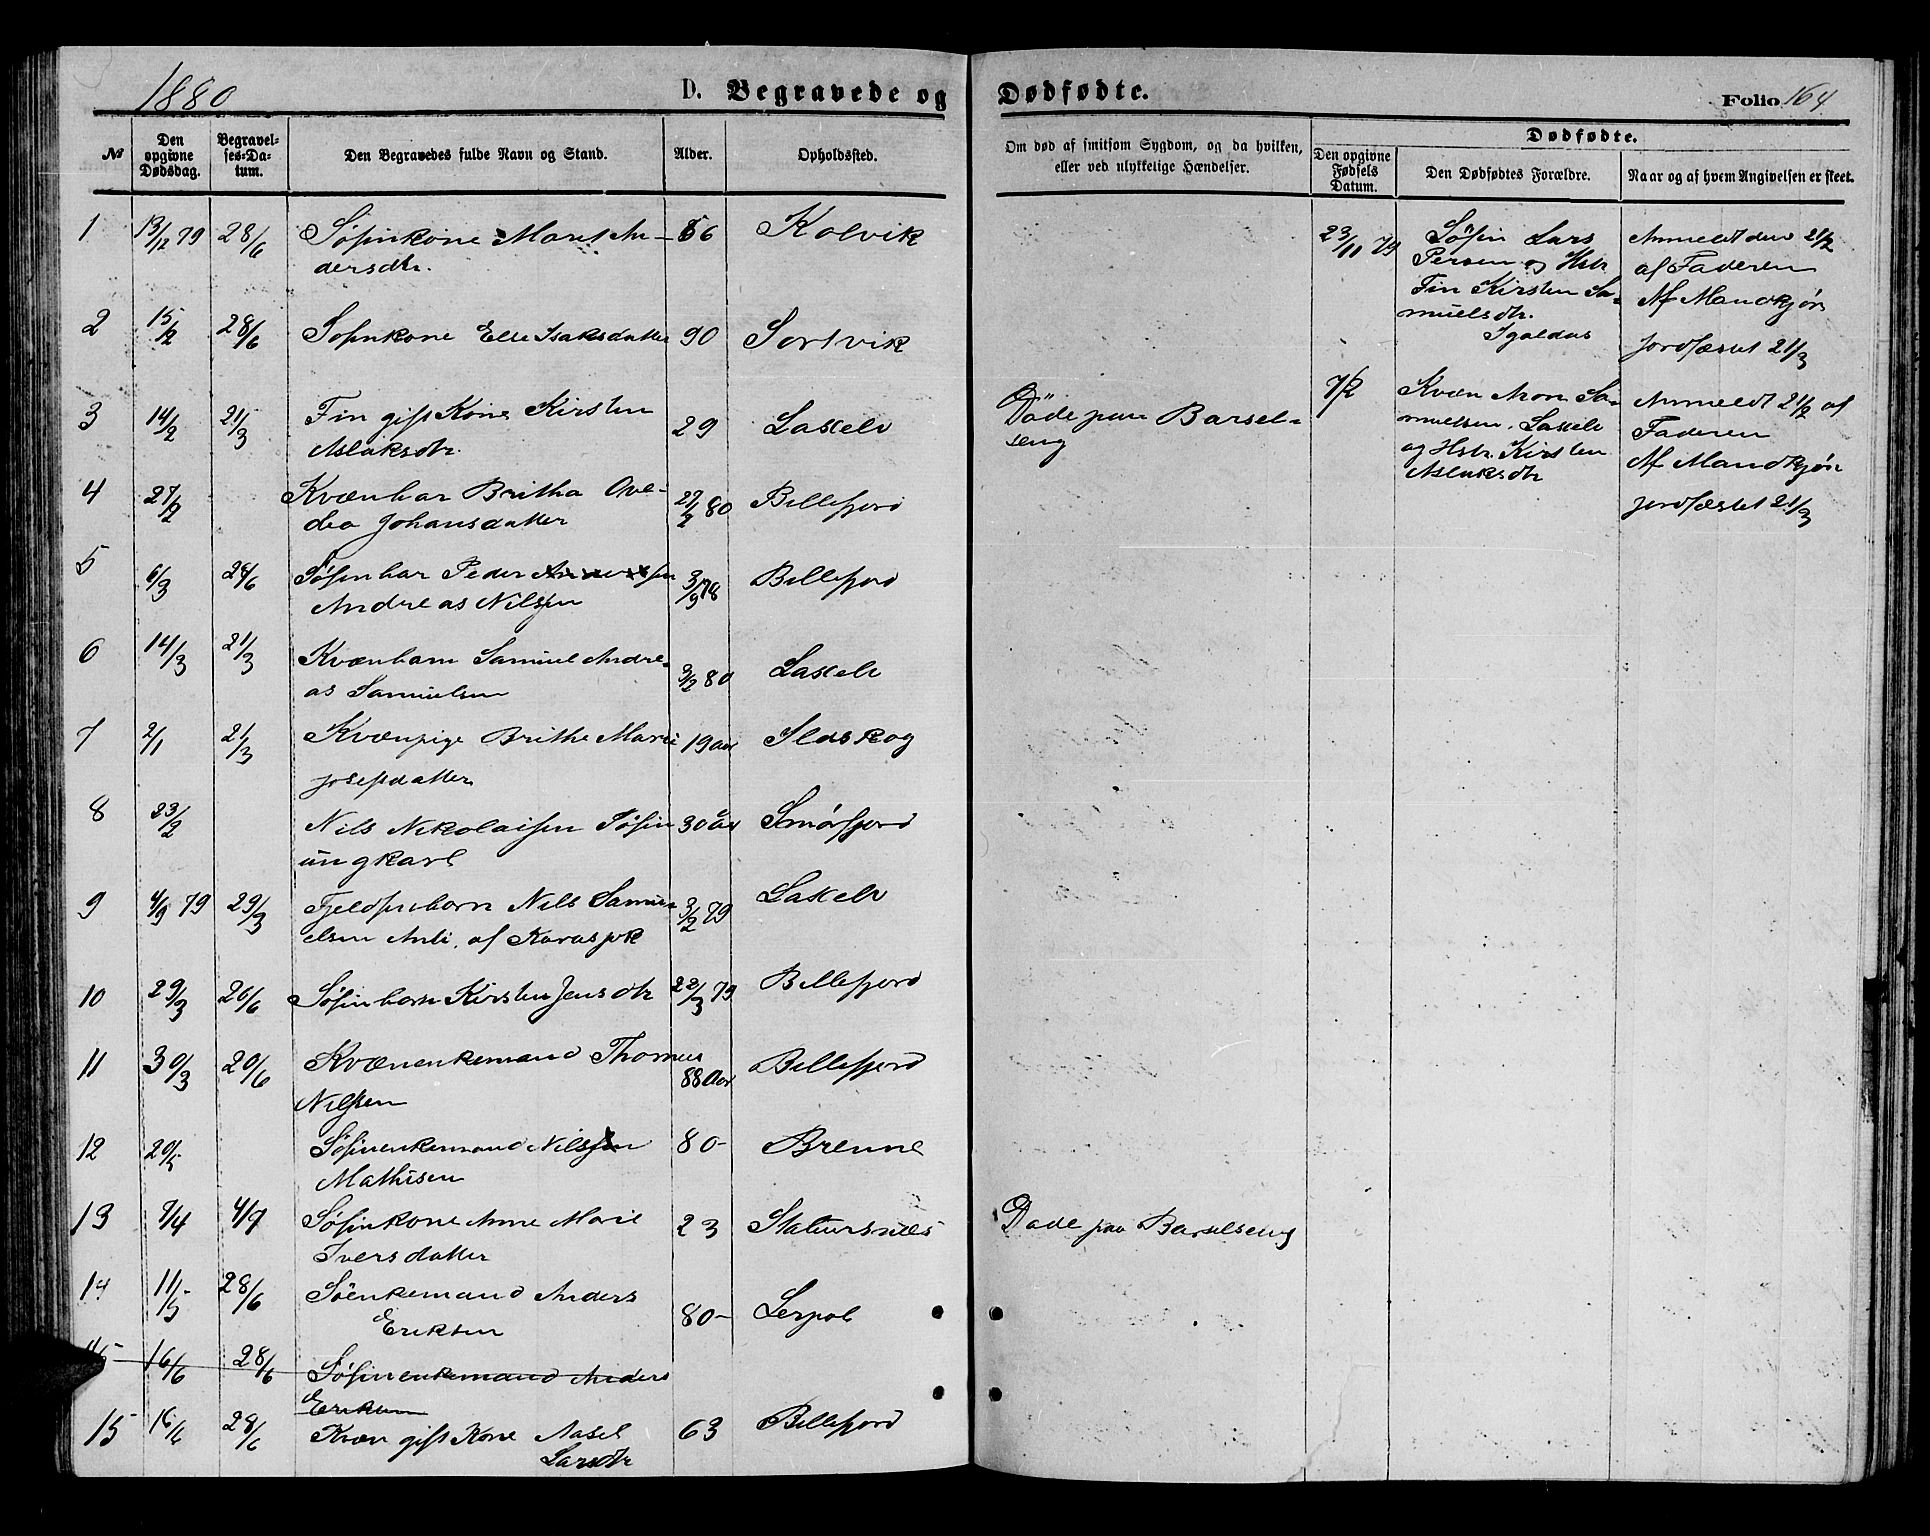 1880
D. Begravede og Dødfødte.
Folio 164
№
Den opgivne Dødsdag.
Begravel-ses-Da-tum.
Den Begravedes fulde Navn og Stand.
Alder.
Opholdssted.
Om død af smitsom Sygdom, og da hvilken, eller ved ulykkelige Hændelser.
Dødfødte.
Den opgivne Fødsels Datum.
Den Dødfødtes Forældre.
Naar og af hvem Angivelsen er skeet.
1 13/12 79 28/6 Søfinkone Maret An- 56 Kolvik
dersdtr.
2 15/2 28/6 Søfinkone Elle Isaksdatter 90 Sortvik
3 14/2 21/3 Fin gift Kone Kirsten 29 Laxelv
Aslaksdtr.
4 27/2 Kvænbar Britha Ove- 27/2 80 Billefjord
dia Johansdatter
5 6/3 28/6 Søfinbar Peder Andersen 3/9 78 Billefjord
Andreas Nilssen
6 14/3 21/3 Kvænbarn Samuel Andre- 3/2 80 Laxelv
as Samuelsen
7 2/1 21/3 Kvænpige Brithe Marie 19 aar Ildskog
Josepdatter
8 23/2 Nils Nikolaisen Søfin 30 aar Smørfjord
ungkarl
9 4/9 79 29/3 Fjeldfinbarn Nils Samu- 3/2 79 Laxelv
elsen Anti. af Karasjok
10 29/3 26/6 Søfinbarn Kirsten Jensdtr 22/3 79 Billefjord
11 30/3 20/6 Kvænenkemand Thomas 88 Aar Billefjord
Nilssen
12 20/5 Søfinenkemand Nilssen 80- Brenne
Mathisen
13 7/4 4/7 Søfinkone Anne Marie 23
Iversdatter
14 11/5 28/6 Søenkemand Anders 80- Lerpol
Eriksen
15 16/6 28/6 Søfinenkemand Anders
Eriksen
15 16/6 28/6 Kvæn gift Kone Aasel 63 Billefjord
Larsdtr
Döde paa Barsel-
seng
Døde paa Barselseng
23/11 79
Søfin Lars
Persen og Hstr
Fin Kirsten Sa-
muelsdtr.
Igeldas
Anmeldt den 21/2
af Faderen
Af Mandkjøn
Jordfæstet 21/3
7/2
Kvæn Aron Sa-
muelsen, Laxelv
og Hstr. Kirsten
Aslaksdtr
Anmeldt 21/2 af
Faderen
Af Mandkjøn
Jordfæstet 21/3